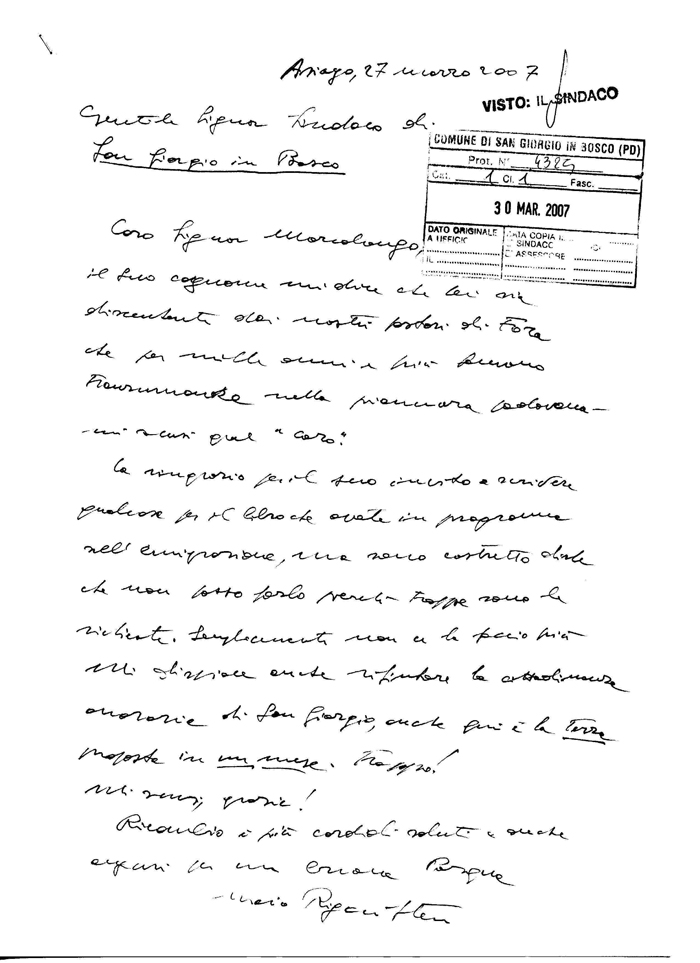 Asiago, 27 marzo 2007
VISTO: IL SINDACO
Gentile Signor Sindaco di
San Giorgio in Bosco
COMUNE DI SAN GIORGIO IN BOSCO (PD)
Prot. N° 4389
Cat. 1 Cl. 1 Fasc.
30 MAR. 2007
DATO ORIGINALE
A UFFICIO
IL
DATA COPIA
SINDACO
ASSESSORE
Caro Signor Marcolongo,
il suo cognome mi dice che lei sia
discendente dai nostri pastori di Foza
che per mille anni e più facevano
transumanza nella pianura padovana -
- mi scusi quel "caro".
La ringrazio per il suo invito a scrivere
qualcosa per il libro che avete in programma
sull'emigrazione, ma sono costretto dirle
che non posso farlo perché troppe sono le
richieste. Semplicemente non ce la faccio più
Mi dispiace anche rifiutare la cittadinanza
onoraria di San Giorgio, anche qui è la terza
proposta in un mese. Troppo!
Mi scusi, grazie!
Ricambio i più cordiali saluti e anche
auguri per una buona Pasqua
Mario Rigoni Stern